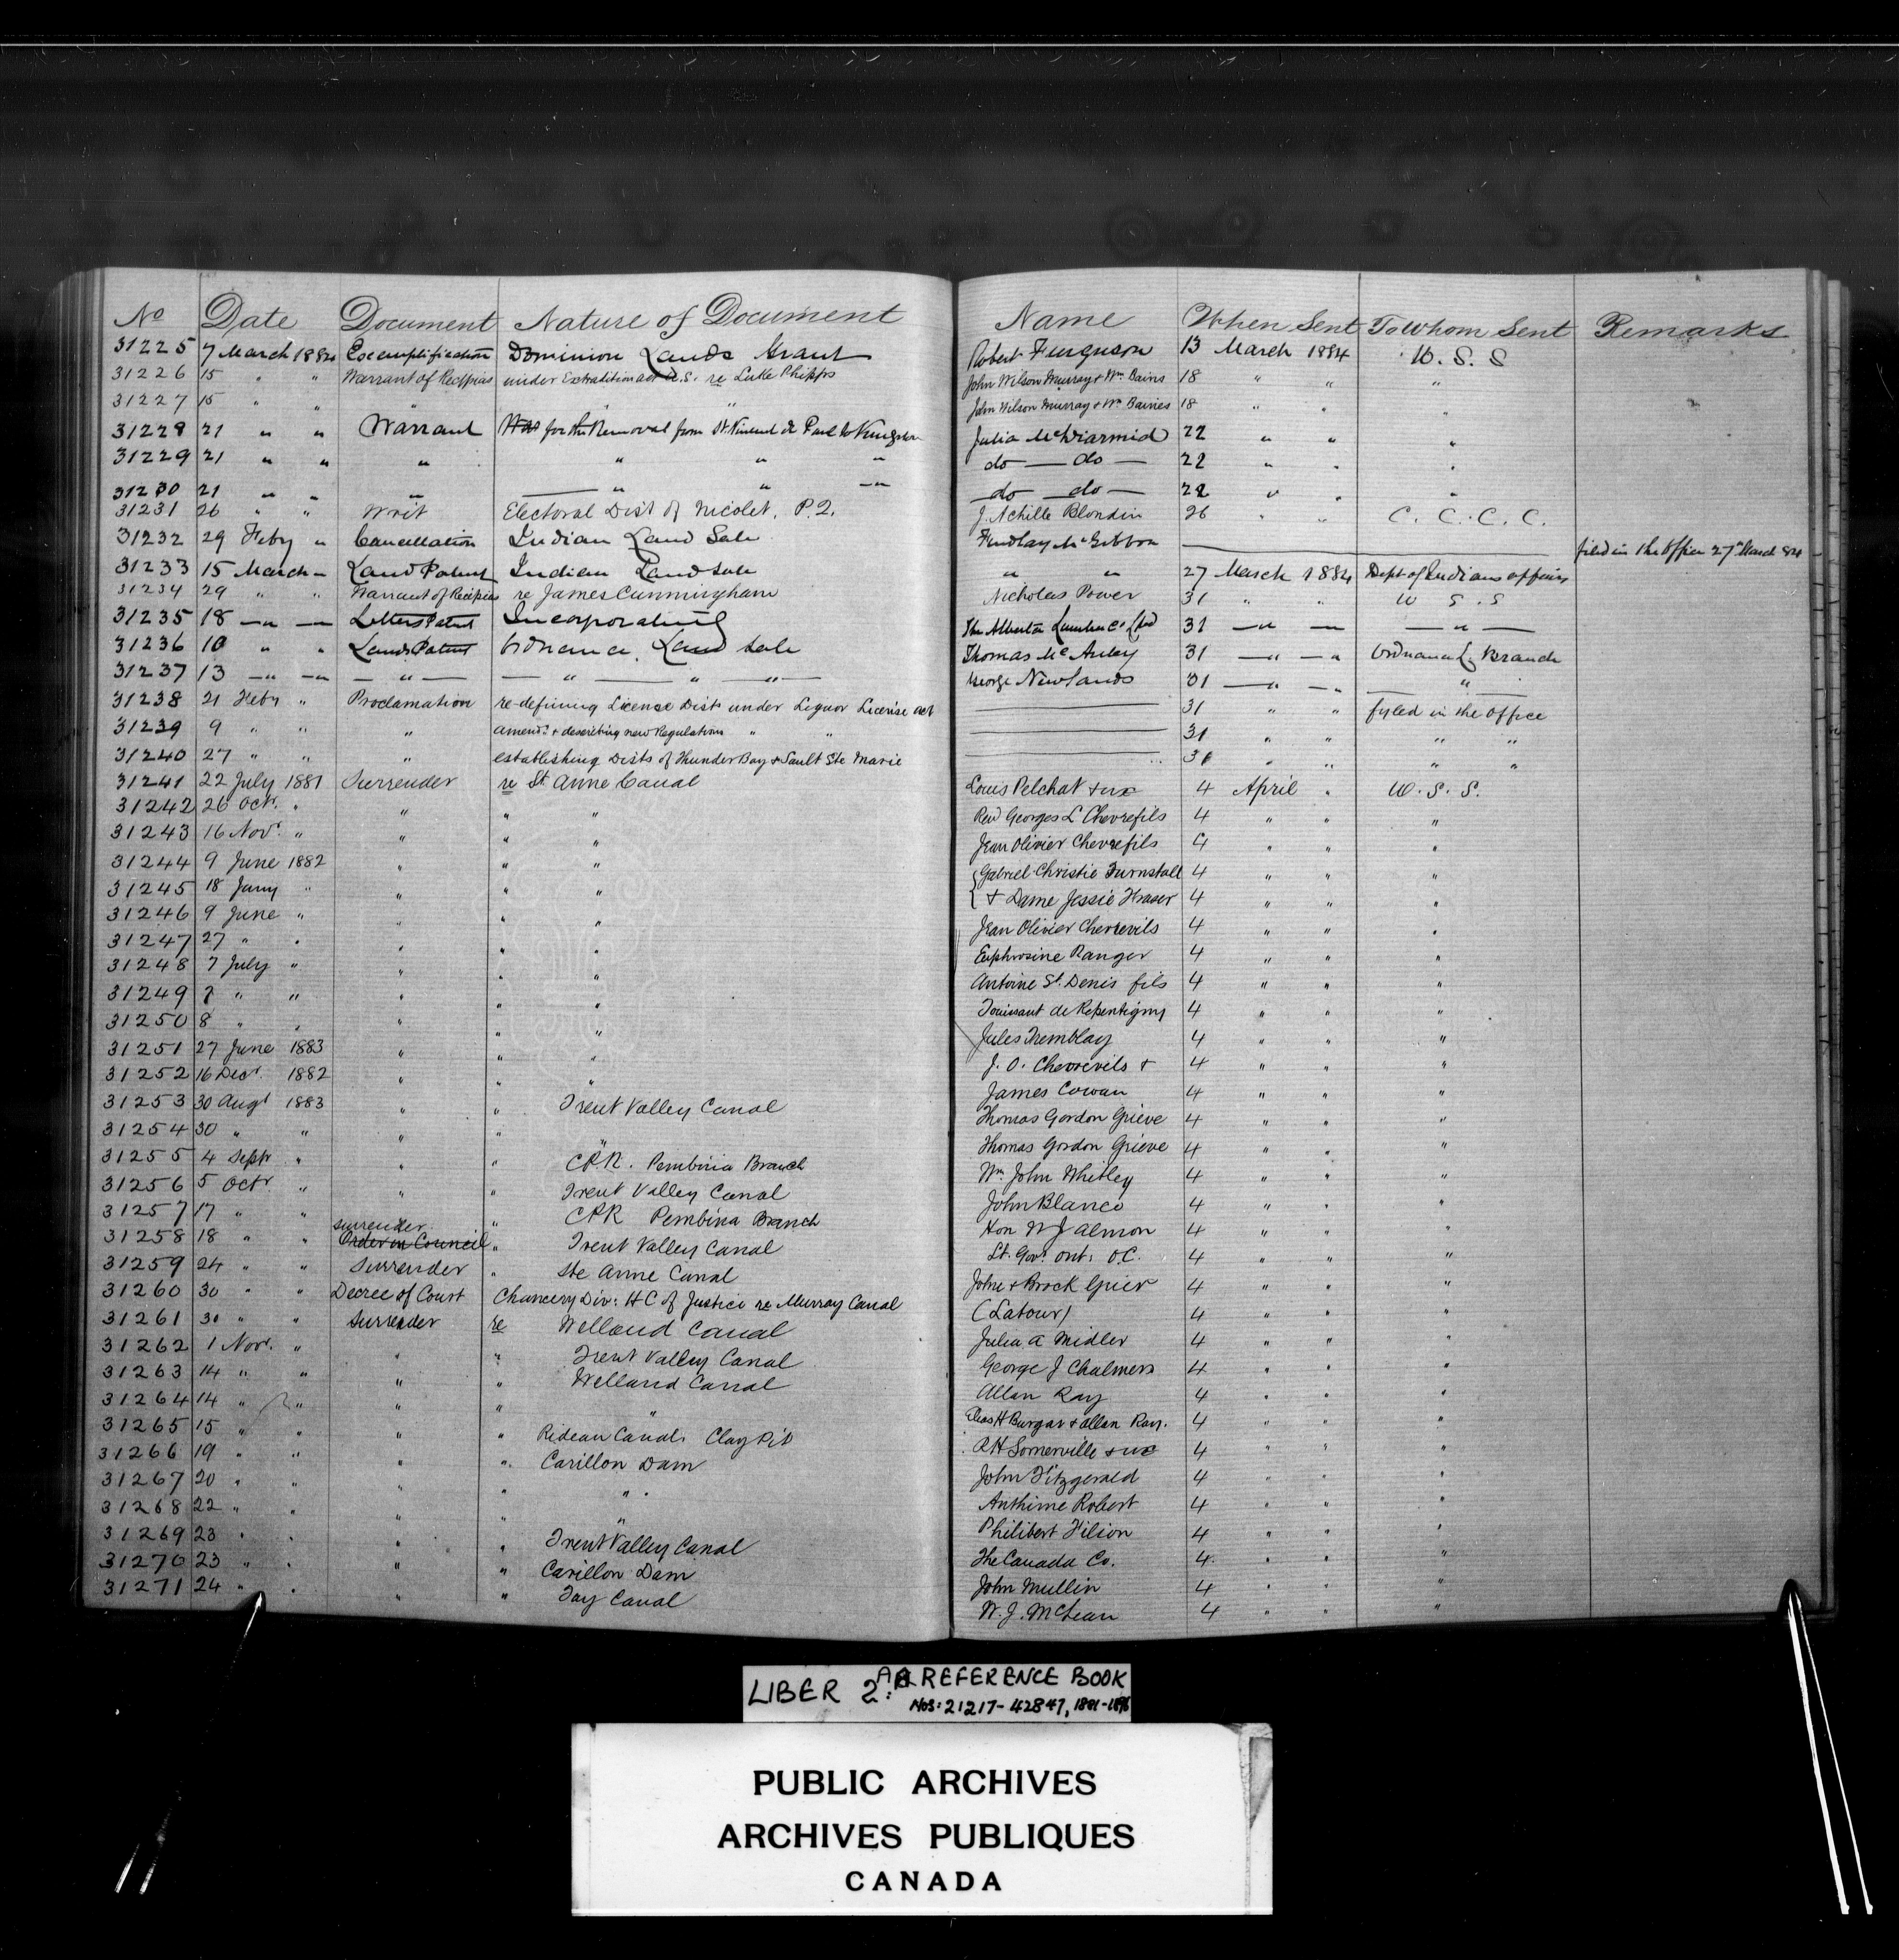 No Date Document Nature of Document Name When Sent To Whom Sent Remarks
31225 7 March 1884 Exemplification Dominion Lands Grant Robert Ferguson 13 March 1884 U. S. S
31226 15 " " Warrant of Recipias under Extradition act U.S. re Luke Phipps John Wilson Murray & Wm Bains 18 " " "
31227 15 " " " " John Wilson Murray & Wm Baines 18 " " "
31228 21 " " Warrant for the Removal from St. Vincent de Paul to Kingston Julia McDiarmid 22 " " "
31229 21 " " " " " " do — do — 22 " " "
31230 21 " " " " " " do — do — 22 " " "
31231 26 " " Writ Electoral Dist of Nicolet, P.Q. J. Achille Blondin 26 " " C. C. C. C.
31232 29 Feby " Cancellation Indian Land Sale Findlay McGibbon filed in the office 27th March 84
31233 15 March " Land Patent Indian Land sale " " 27 March 1884 Dept of Indian affairs
31234 29 " " Warrant of Recipias re James Cunningham Nicholas Power 31 " " U S. S
31235 18 " — Letters Patent Incorporating The Alberta Lumber Co Ltd 31 — " — — " —
31236 10 " " Lands Patent Ordnance Land sale Thomas McAuley 31 — " — " Ordnance L. Branch
31237 13 — " — " — " — — " — " — " — George Newlands 31 — " — " "
31238 21 Feby " Proclamation re-defining License Dists under Liquor License act 31 " " fyled in the office
31239 9 " " " amend. & describing new Regulation " " 31 " " " "
31240 27 " " " establishing Dists of Thunder Bay & Sault Ste Marie 31 " " " "
31241 22 July 1881 Surrender re St. Anne Canal Louis Pelchat & ux 4 April " U. S. S.
31242 26 Oct. " " " " Rev Georges L Chevrefils 4 " " "
31243 16 Novr. " " " " Jean Olivier Chevrefils 4 " " "
31244 9 June 1882 " " " { Gabriel Christie Turnstall 4 " " "
31245 18 Jany " " " " { & Dame Jessie Fraser 4 " " "
31246 9 June " " " " Jean Olivier Chevrevils 4 " " "
31247 27 " " " " " Euphrosine Ranger 4 " " "
31248 7 July " " " " Antoine St. Denis fils 4 " " "
31249 7 " " " " " Touissant de Repentigny 4 " " "
31250 8 " " " " " Jules Tremblay 4 " " "
31251 27 June 1883 " " " J. O. Chevrevils & 4 " " "
31252 16 Decr. 1882 " " " James Cowan 4 " " "
31253 30 Augt 1883 " " Trent Valley Canal Thomas Gordon Grieve 4 " " "
31254 30 " " " " " Thomas Gordon Grieve 4 " " "
31255 4 Sept " " " CPR. Pembina Branch Wm. John Whitley 4 " " "
31256 5 Octr " " " Trent Valley Canal John Blanco 4 " " "
31257 17 " " " CPR Pembina Branch Hon W J Almon 4 " " "
31258 18 " " surrender Order in Council " Trent Valley Canal Lt. Govr. Ont. O.C. 4 " " "
31259 24 " " Surrender " Ste Anne Canal John & Brock Grier 4 " " "
31260 30 " " Decree of Court Chancery Div: H C of Justice re Murray Canal (Latour) 4 " " "
31261 30 " " Surrender re Welland Canal Julia A Midler 4 " " "
31262 1 Nov. " " " Trent Valley Canal George J Chalmers 4 " " "
31263 14 " " " " Welland Canal Allan Ray 4 " " "
31264 14 " " " " " Elias H Burgar & Allan Ray. 4 " " "
31265 15 " " " " Rideau Canal. Clay Pit R H Somerville & ux 4 " " "
31266 19 " " " " Carillon Dam John Fitzgerald 4 " " "
31267 20 " " " " " Anthime Robert 4 " " "
31268 22 " " " " " Philibert Filion 4 " " "
31269 23 " " " " Trent Valley Canal The Canada Co. 4 " " "
31270 23 " " " " Carillon Dam John Mullin 4 " " "
31271 24 " " " " Tay Canal W. J. McLean 4 " " "
LIBER 2: REFERENCE BOOK
NOS: 21217-42847, 1881-1896
PUBLIC ARCHIVES
ARCHIVES PUBLIQUES
CANADA